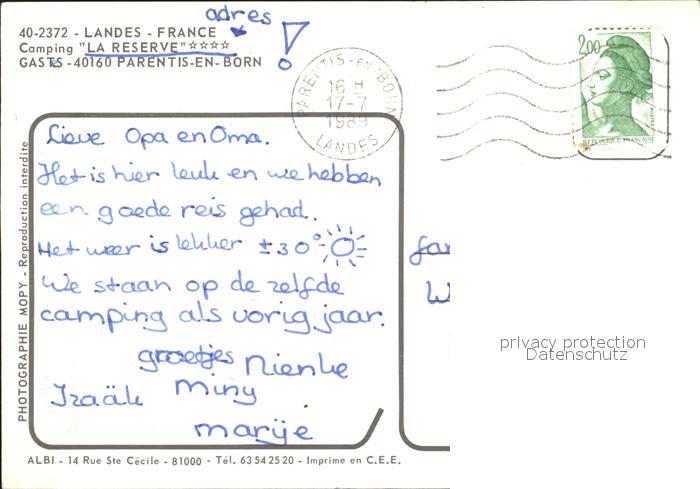 adres
!
40-2372 - LANDES - FRANCE
Camping "LA RESERVE"☆☆☆☆
GASTES -40160 PARENTIS-EN-BORN
PARENTIS-EN-BORN
16 H
17-7
1989
LANDES
2,00
POSTES
REPUBLIQUE FRANCAISE
Lieve Opa en Oma.
Het is hier leuk en we hebben
een goede reis gehad.
Het weer is lekker ±30°
We staan op de zelfde
camping als vorig jaar.
groetjes Nienke
Izaäk Miny
marije
fam
W
PHOTOGRAPHIE MOPY - Reproduction interdite
privacy protection
Datenschutz
ALBI - 14 Rue Ste Cécile - 81000 - Tél. 63 54 25 20 - Imprime en C.E.E.